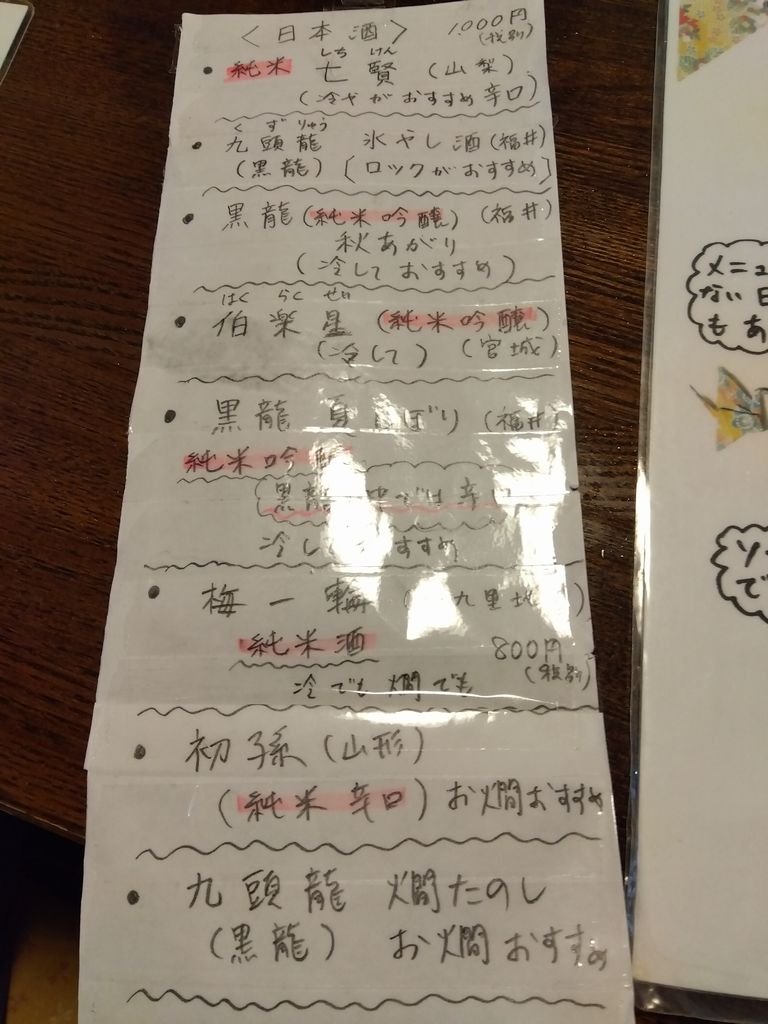 〈日本酒〉 1,000円
(税別)
しち けん
・純米 七賢 (山梨)
(冷やがおすすめ辛口)
く ず りゅう
・九頭龍 氷やし酒(福井)
(黒龍)[ロックがおすすめ]
・黒龍(純米吟醸)(福井)
秋あがり
(冷しておすすめ)
はく らく せい
・伯楽星(純米吟醸)
(冷して)(宮城)
・黒龍 夏しぼり(福井)
純米吟醸
黒龍 中では辛口
冷し すすめ
・梅一輪 ( 九 )
純米酒 800円
(税別)
冷でも燗でも
・初孫(山形)
(純米 辛口)お燗おすすめ
・九頭龍 燗たのし
(黒龍) お燗おすすめ
メニュ
ない日
もあ
ソ
で